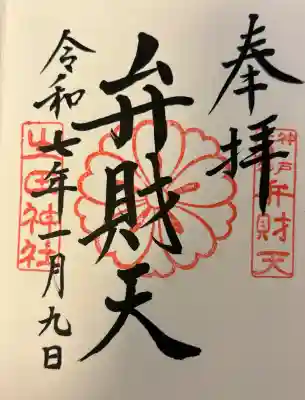 奉拝
弁財天
令和七年一月九日
神戸弁財天
山口神社